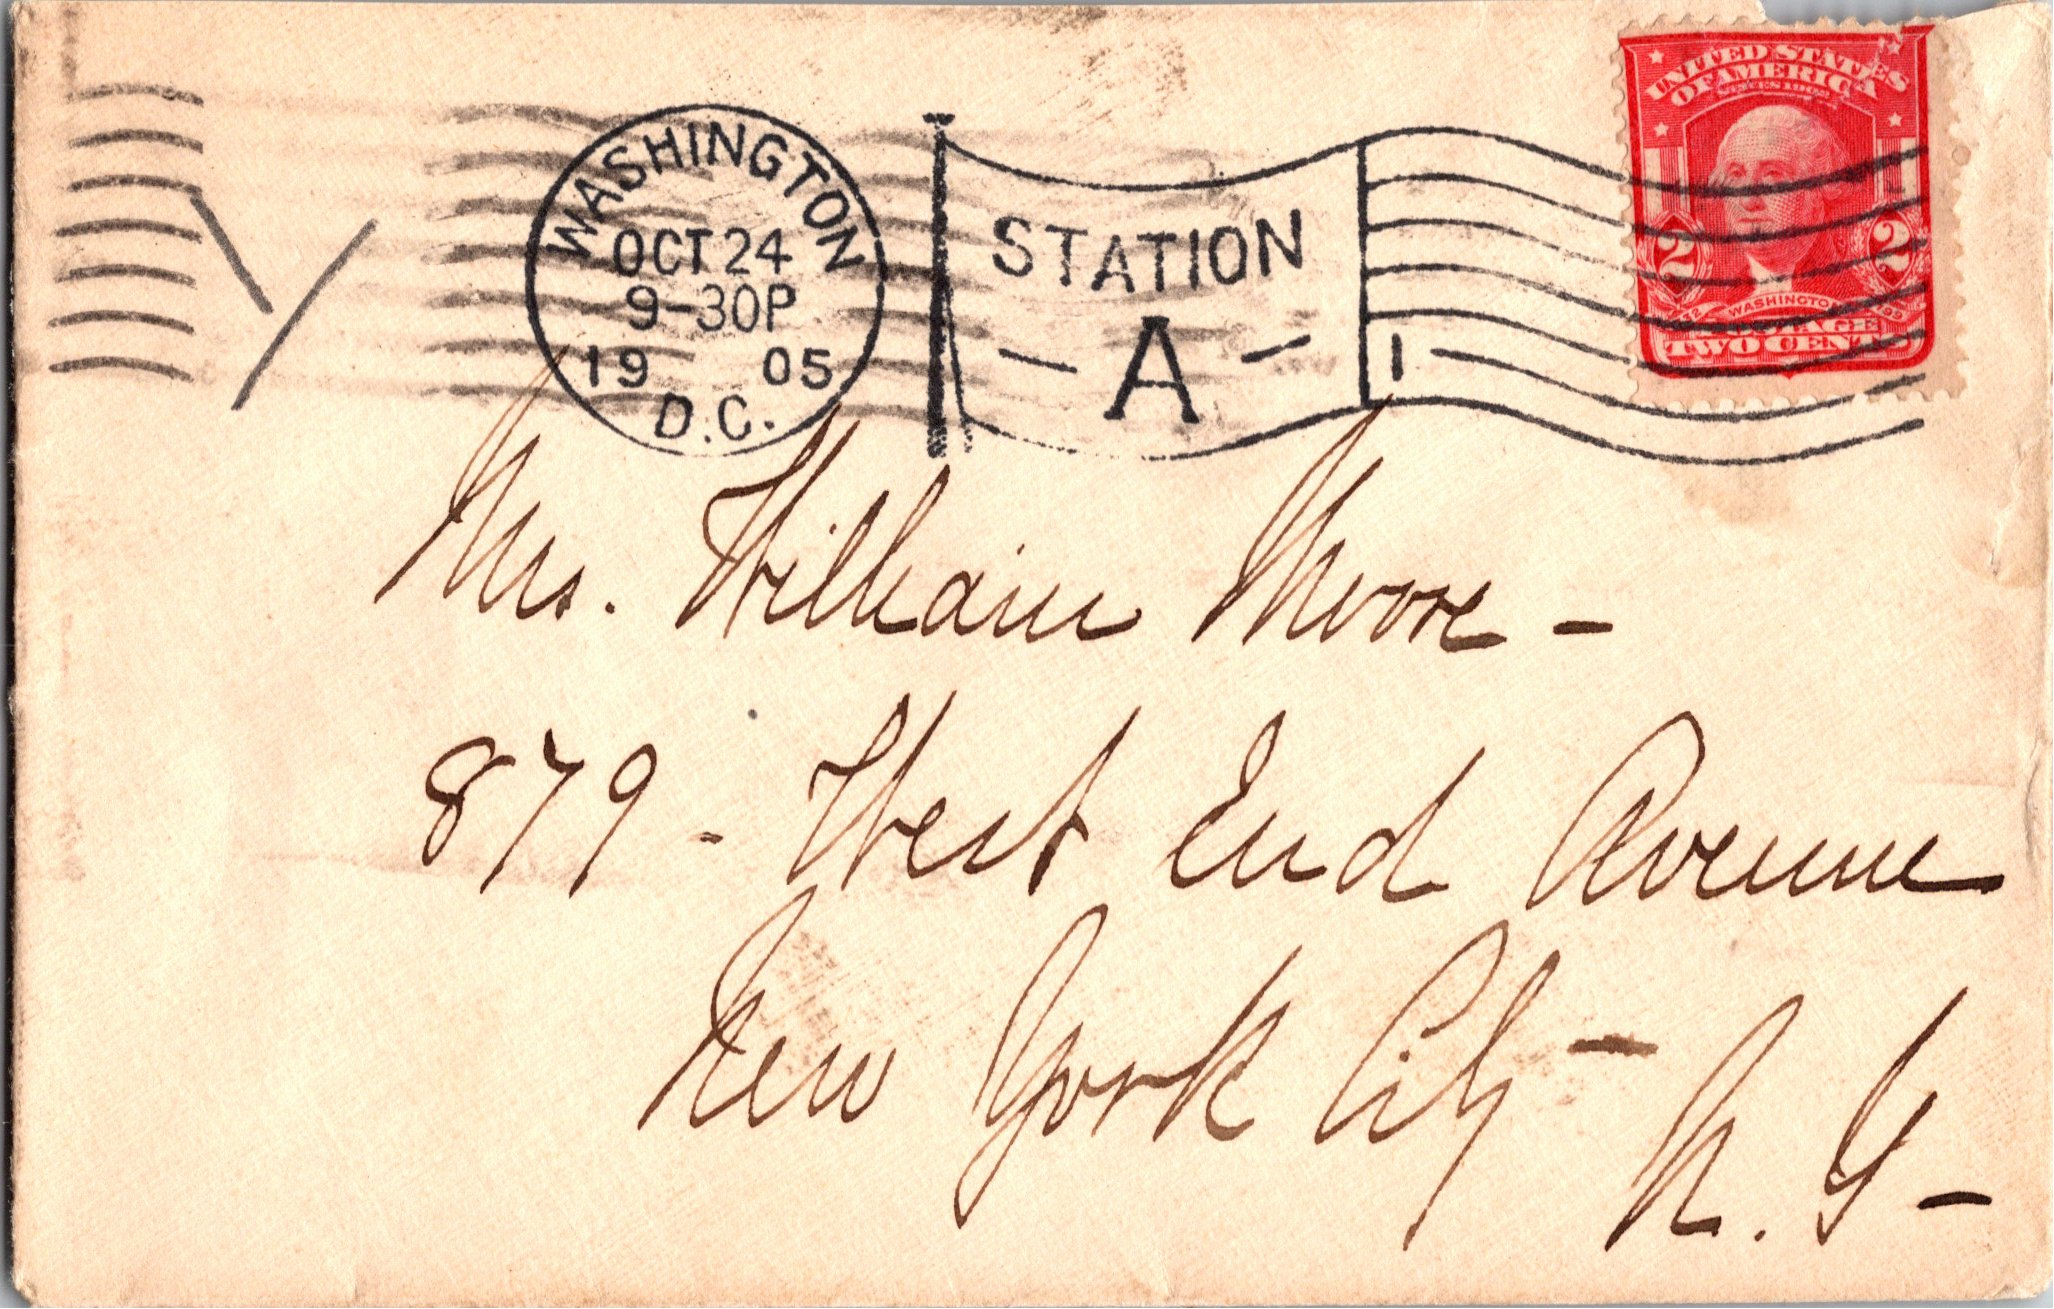 UNITED STATES
OF AMERICA
SERIES 1902
WASHINGTON
OCT 24
9-30P
19 05
D.C.
STATION
- A -
1
2 2
WASHINGTO
POSTAGE
TWO CENT
Mrs. William Moore -
879 - West End Avenue
New York City -
N. Y -